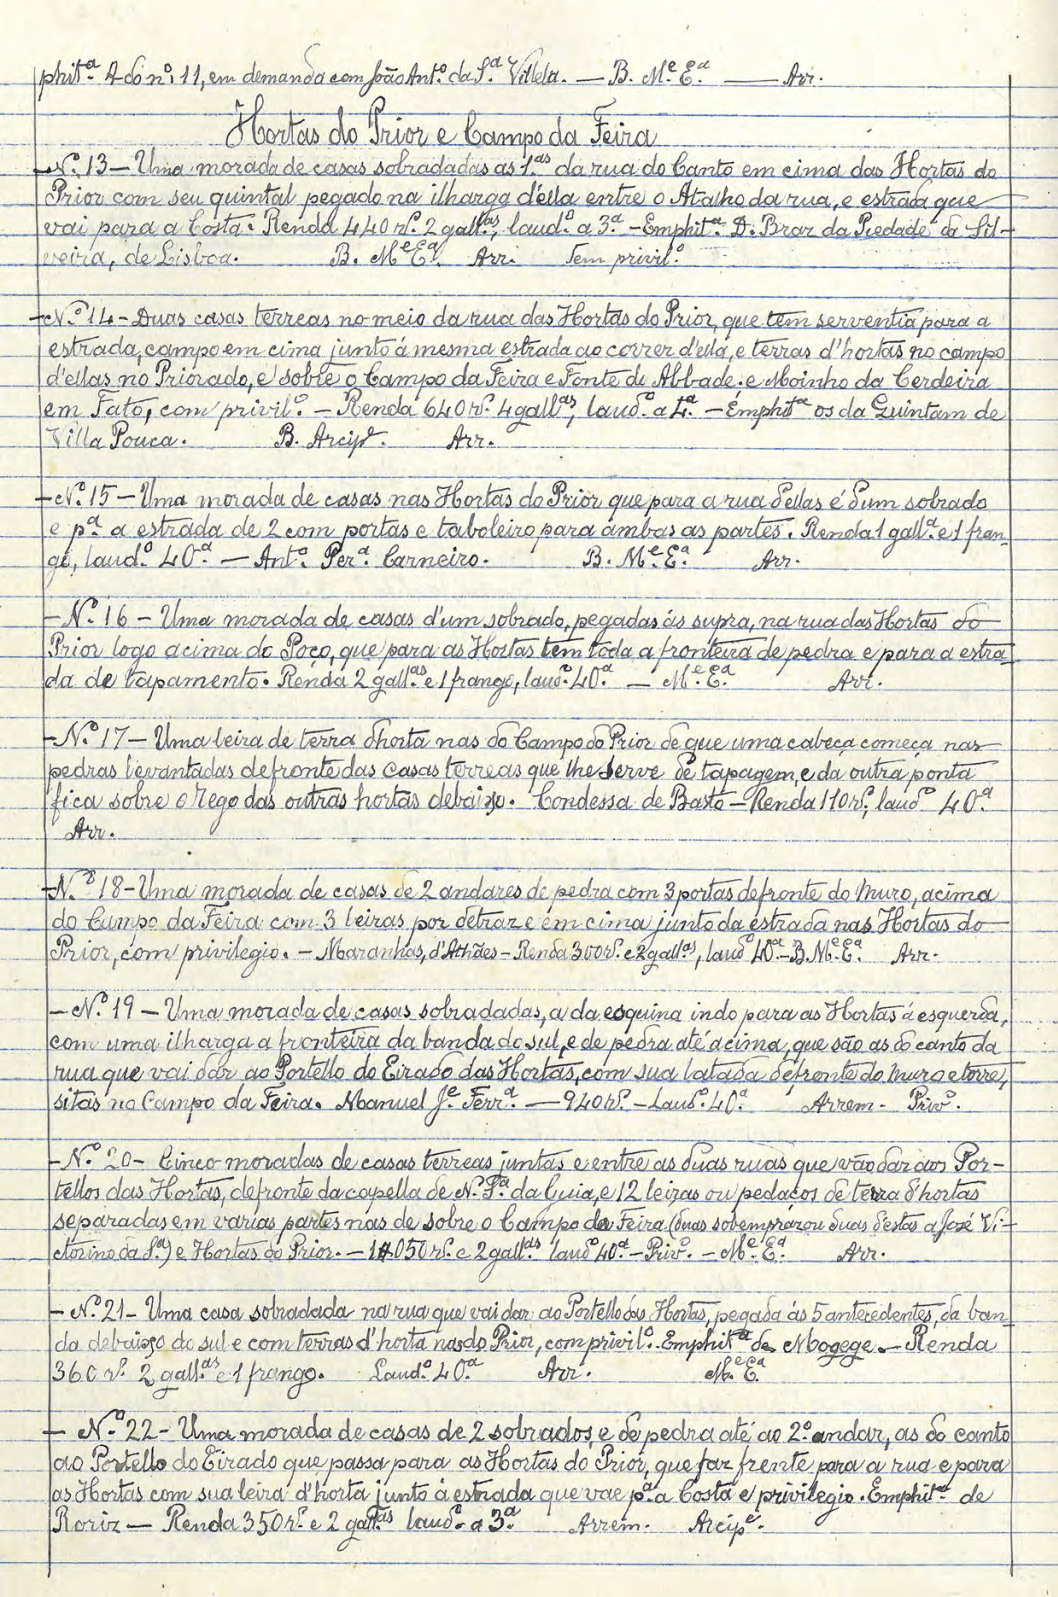 phit.ª A do nº. 11, em demanda com João Ant.º da S.ª Villela. — B. M.e E.ª — Arr.
Hortas do Prior e Campo da Feira
— N.º 13 — Uma morada de casas sobradadas as 1.as da rua do Canto em cima das Hortas do
Prior com seu quintal pegado na ilharga d'ella entre o Atalho da rua, e estrada que
vai para a Costa. Renda 440 rs. 2 gall.as, laud.º a 3.ª — Emphit.ª D. Braz da Piedade da Sil-
veira, de Lisboa. B. M.e E.ª Arr. Tem privil.º
— N.º 14 — Duas casas terreas no meio da rua das Hortas do Prior, que tem serventia para a
estrada, campo em cima junto á mesma estrada ao correr d'ella, e terras d'hortas no campo
d'ellas no Priorado, e sobre o Campo da Feira e Fonte do Abbade. e Moinho da Cerdeira
em Fato, com privil.º — Renda 640 rs. 4 gall.as, laud.º a 4.ª — Emphit.ª os da Quintam de
Villa Pouca. B. Arcip.e Arr.
— N.º 15 — Uma morada de casas nas Hortas do Prior que para a rua d'ellas é d'um sobrado
e p.ª a estrada de 2 com portas e taboleiro para ambas as partes. Renda 1 gall.ª e 1 fran-
go, laud.º 40.ª — Ant.º Per.ª Carneiro. B. M.e E.ª Arr.
— N.º 16 — Uma morada de casas d'um sobrado, pegadas ás supra, na rua das Hortas do
Prior logo acima do Poço, que para as Hortas tem toda a fronteira de pedra e para a estra-
da de tapamento. Renda 2 gall.as e 1 frango, laud.º 40.ª — M.e E.ª Arr.
— N.º 17 — Uma leira de terra d'horta nas do Campo do Prior de que uma cabeça começa nas
pedras levantadas defronte das casas terreas que lhe serve de tapagem, e da outra ponta
fica sobre o rego das outras hortas debaixo. Condessa de Basto — Renda 110 rs., laud.º 40.ª
Arr.
— N.º 18 — Uma morada de casas de 2 andares de pedra com 3 portas defronte do Muro, acima
do Campo da Feira com 3 leiras por detraz e em cima junto da estrada nas Hortas do
Prior, com privilegio. — Maranhas, d'Athães — Renda 300 rs. e 2 gall.as, laud.º 40.ª — B. M.e E.ª Arr.
— N.º 19 — Uma morada de casas sobradadas, a da esquina indo para as Hortas á esquerda,
com uma ilharga a fronteira da banda do sul, e de pedra até acima, que são as do canto da
rua que vai dar ao Portello do Eirado das Hortas, com sua latada defronte do Muro e torre,
sitas no Campo da Feira. Manuel J.e Ferr.ª — 940 rs. — Laud.º 40.ª Arrem. Priv.º
— N.º 20 — Cinco moradas de casas terreas juntas e entre as duas ruas que vão dar aos Por-
tellos das Hortas, defronte da capella de N. S.ª da Guia, e 12 leiras ou pedaços de terra d'hortas
separadas em varias partes nas de sobre o Campo da Feira (duas sobemprazou duas d'estas a José Vi-
ctorino da S.ª) e Hortas do Prior. — 1$050 rs. e 2 gall.as laud.º 40.ª — Priv.º — M.e E.ª Arr.
— N.º 21 — Uma casa sobradada na rua que vai dar ao Portello das Hortas, pegada ás 5 antecedentes, da ban-
da debaixo do sul e com terras d'horta nas do Prior, com privil.º. Emphit.ª de Mogege. — Renda
360 rs. 2 gall.as e 1 frango. Laud.º 40.ª Arr. M.e E.ª
— N.º 22 — Uma morada de casas de 2 sobrados, e de pedra até ao 2.º andar, as do canto
ao Portello do Eirado que passa para as Hortas do Prior, que faz frente para a rua e para
as Hortas com sua leira d'horta junto á estrada que vae p.ª a Costa e privilegio. Emphit.ª de
Roriz — Renda 350 rs. e 2 gall.as laud.º a 3.ª Arrem. Arcip.e